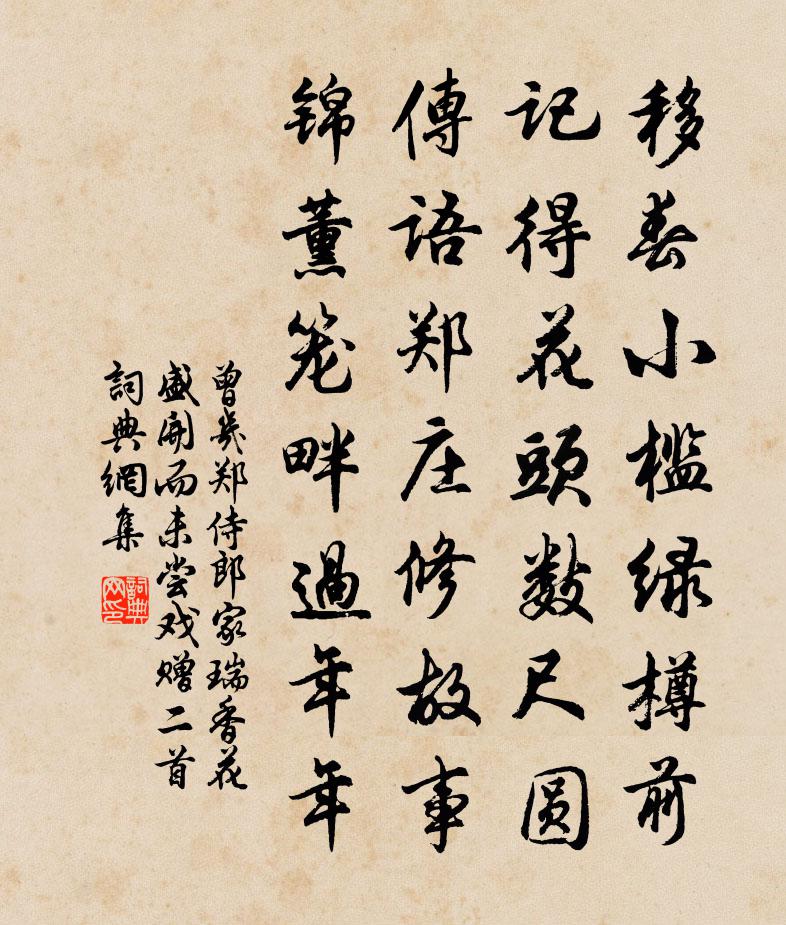 移春小槛绿樽前
记得花頭数尺圆
傳语郑庄修故事
锦薰笼畔過年年
曾幾郑侍郎家瑞香花
盛開而未尝戏赠二首
詞典網集
詞典网印